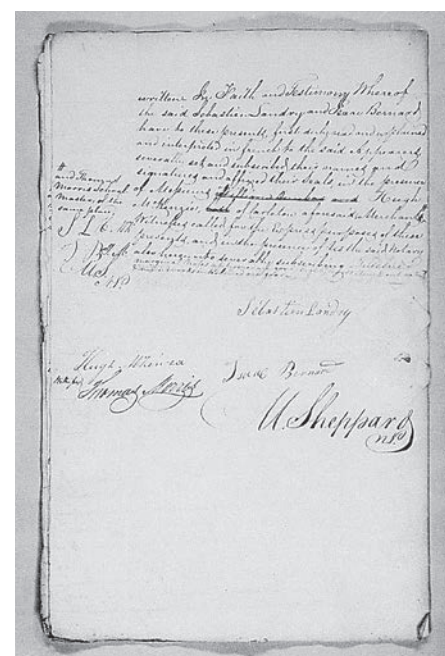 written In Faith and Testimony Whereof
the said Sebastien Landry and Isaac Bernard,
have to these presents, first duly read and explained
and interpreted in french to the said Appearers,
severally set and subscribed their names and
signatures and affixed their Seals, in the presence
of Messieurs and Hugh
of Carleton aforesaid Merchant
Witnesses called for the Express purposes of these
presents, and in the presence of Us the said Notary
also hereunto severally subscribing
and Thomas
Morris School
Master of the
same place
H. S.
N.P.
Sebastien Landry
Hugh
Isaac Bernard
Thomas Morris
U. Sheppard
N.P.